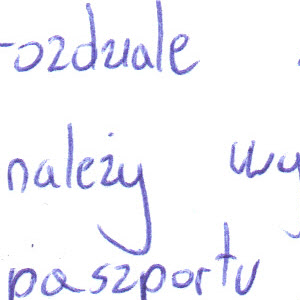 rozdziale
należy wy
paszportu